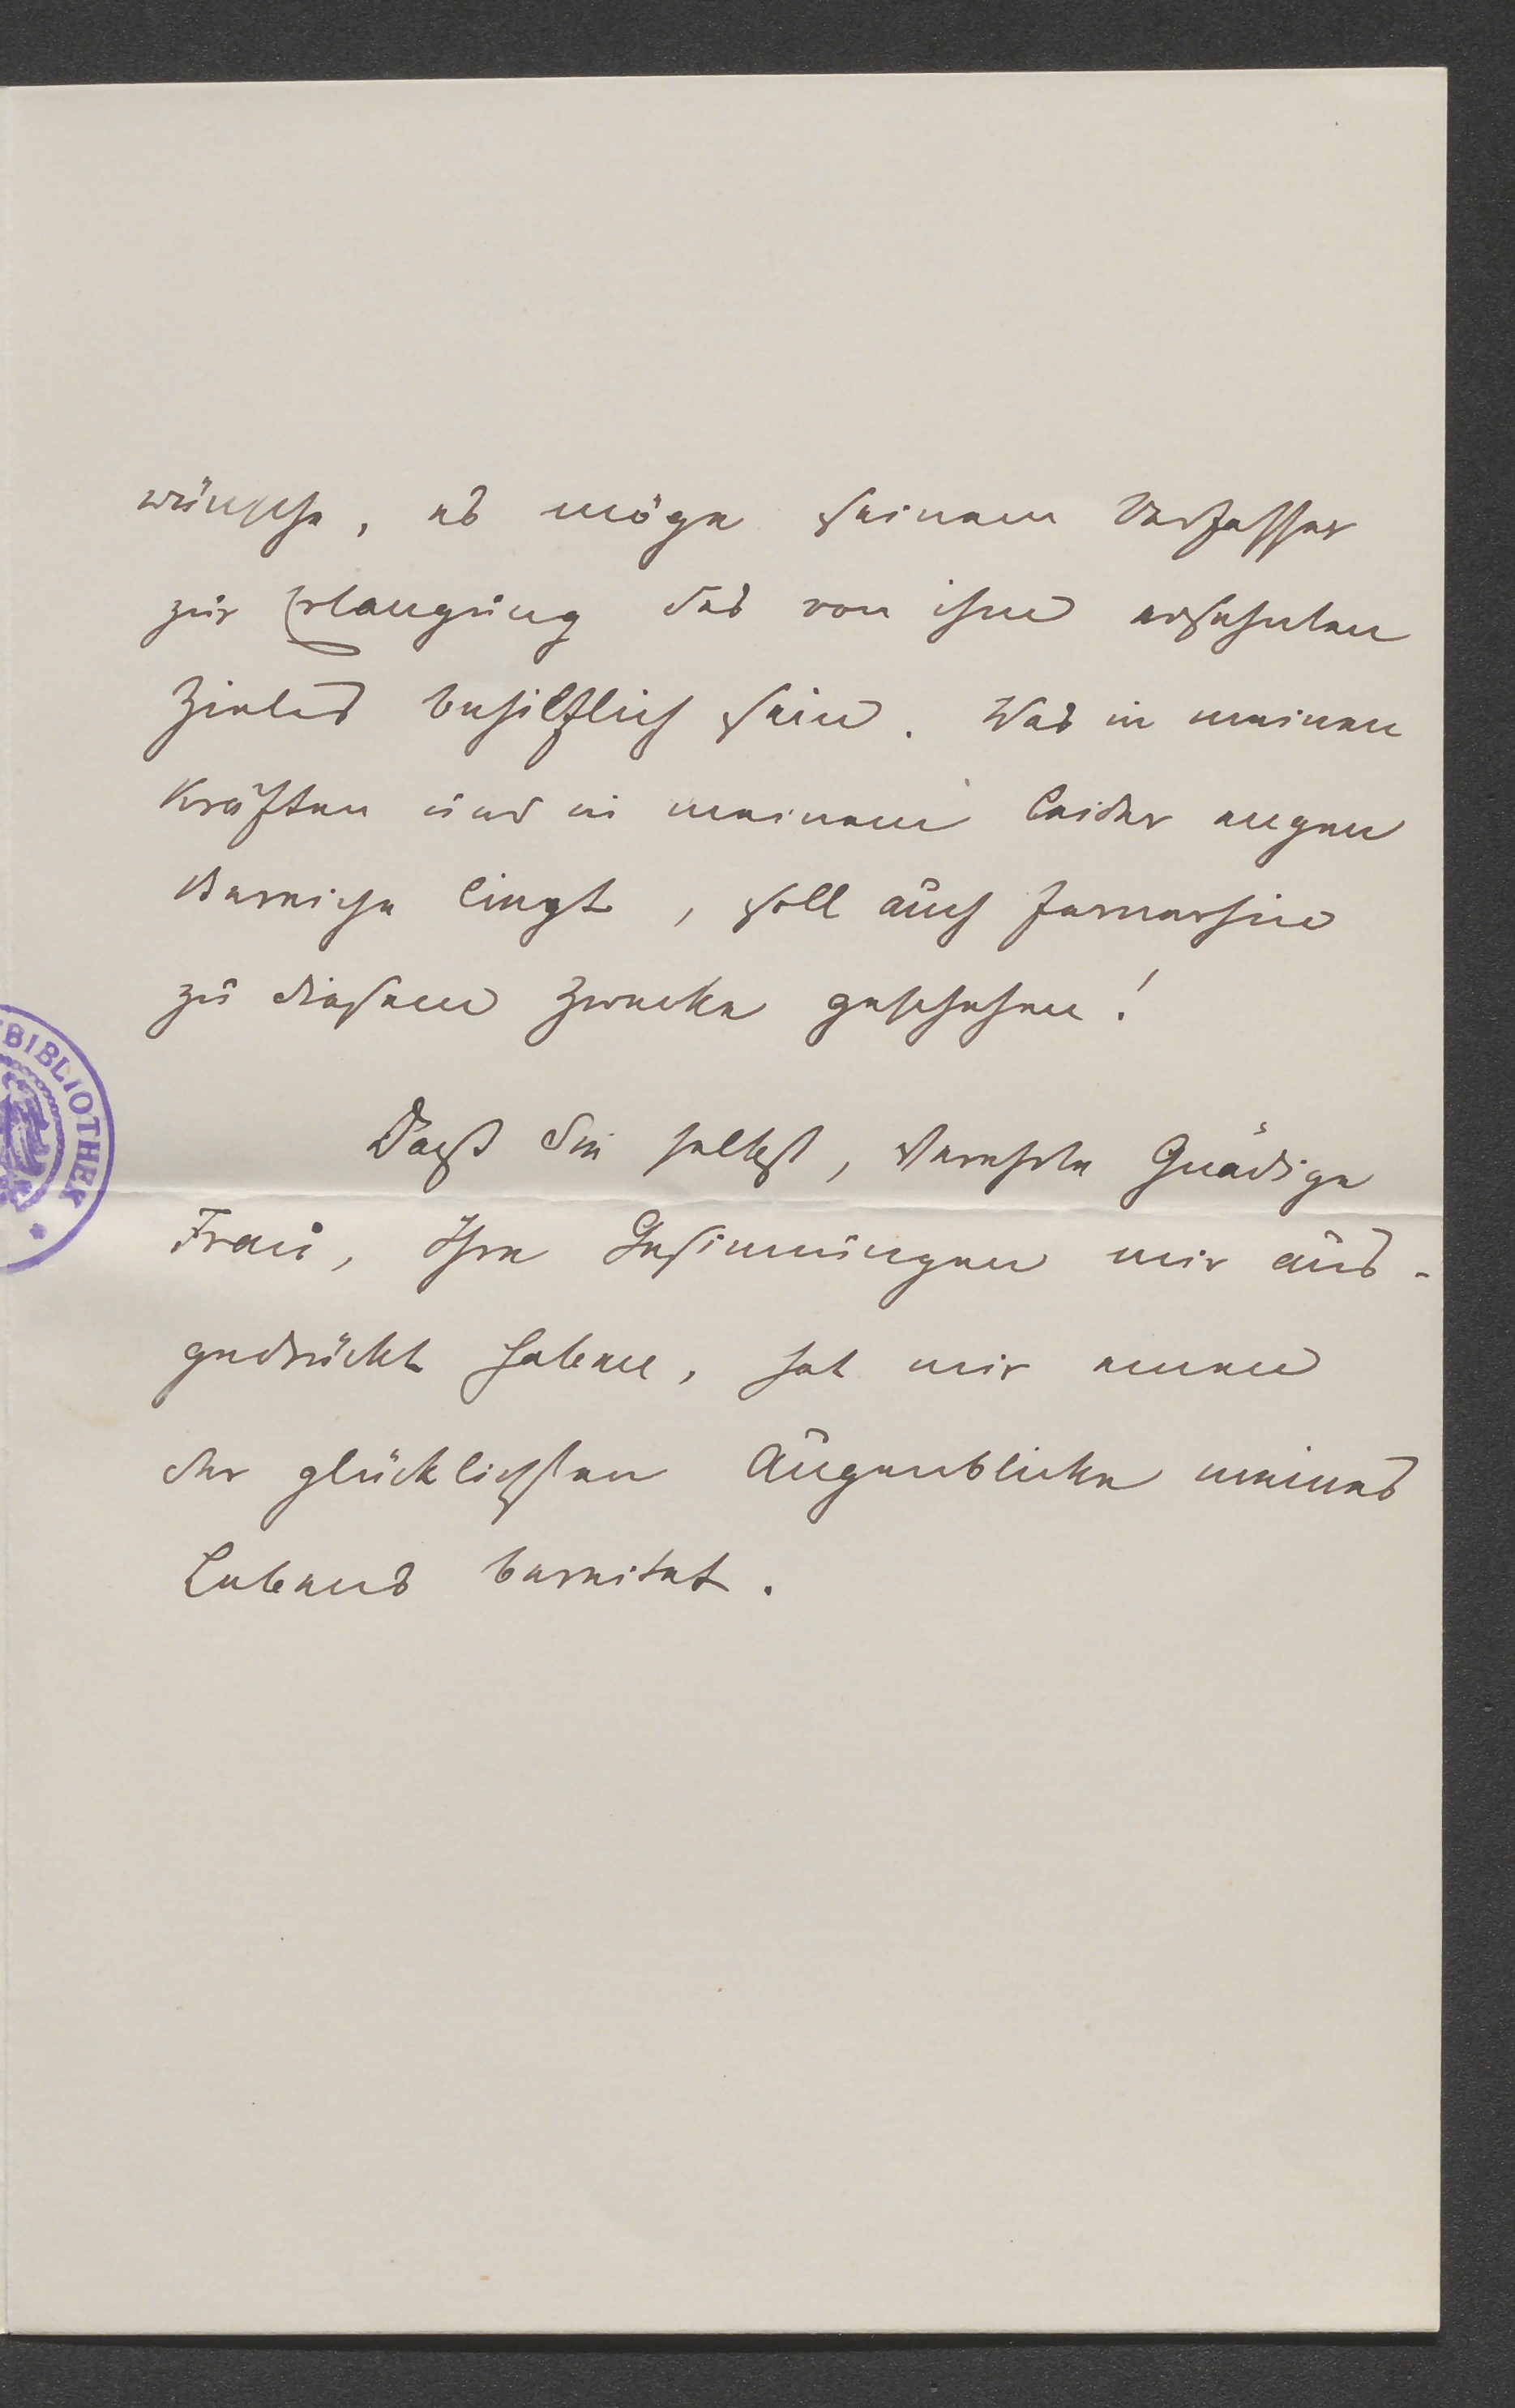 wünsche, es möge seinem Verfasser
zur Erlangung des von ihm ersehnten
Zieles behilflich sein. Was in meinen
Kräften und in meinem leider engen
Bereiche liegt, soll auch fernerhin
zu diesem Zwecke geschehen!
Daß Sie selbst, Verehrte Gnädige
Frau, Ihre Gesinnungen mir aus-
gedrückt haben, hat mir einen
der glücklichsten Augenblicke meines
Lebens bereitet.
BIBLIOTHEK